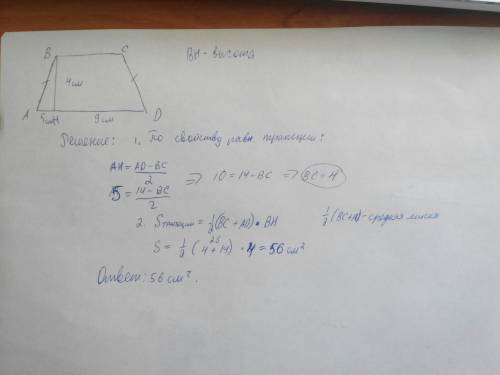 B C BH - высота
4см
A 5см H 9см D
Решение: 1. По свойству равн трапеции:
AH = AD-BC / 2 => 10 = 14-BC => BC = 4
5 = 14-BC / 2
2. Sтрапеции = 1/2 (BC + AD) · BH 1/2 (BC+AD) - средняя линия
S = 1/2 (4 + 14) · 4 = 56 см²
28
Ответ: 56 см².